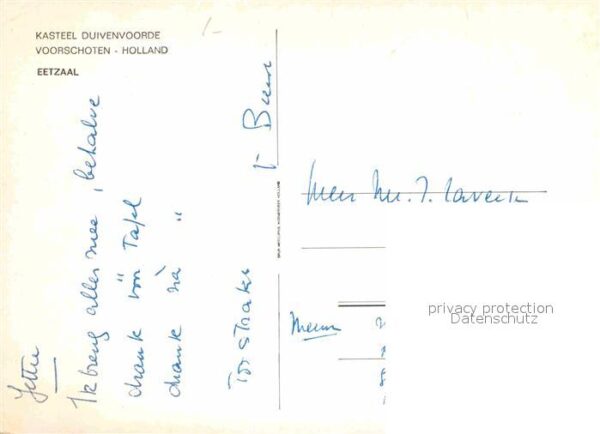 KASTEEL DUIVENVOORDE
VOORSCHOTEN - HOLLAND
EETZAAL
Jettie
Ik breng alles mee, behalve
drank vóór Tafel
drank ná "
Tot straks
Meur
privacy protection
Datenschutz